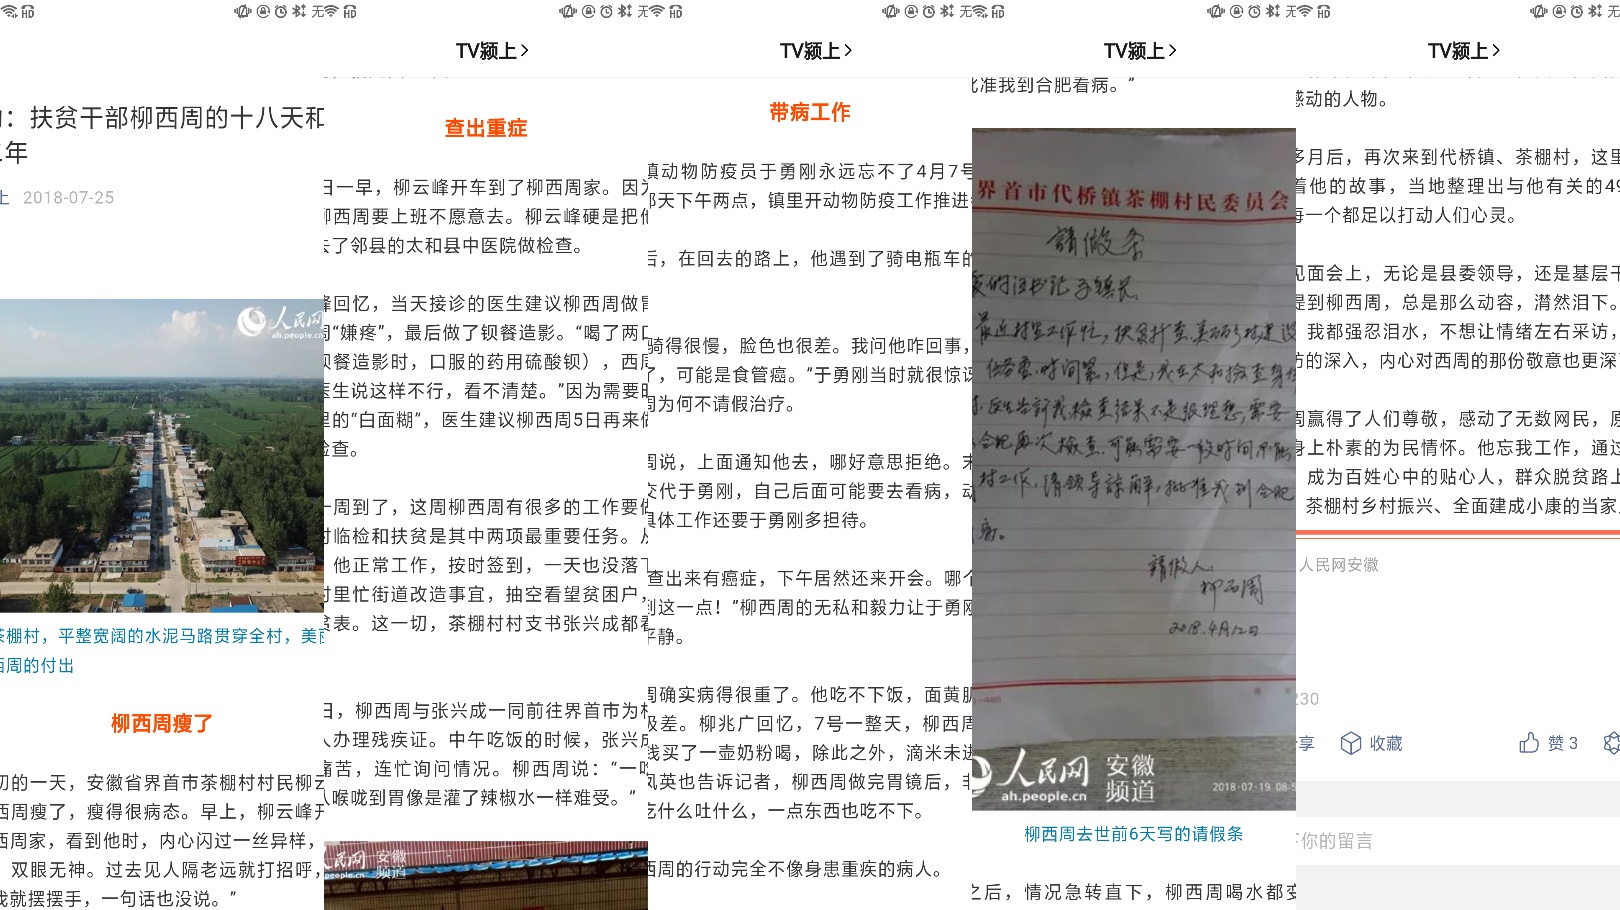 TV颍上
TV颍上
TV颍上
TV颍上
：扶贫干部柳西周的十八天和
年
2018-07-25
人民网
ah.people.cn
茶棚村，平整宽阔的水泥马路贯穿全村，美
西周的付出
柳西周瘦了
初的一天，安徽省界首市茶棚村村民柳云
西周瘦了，瘦得很病态。早上，柳云峰开
西周家，看到他时，内心闪过一丝异样，
双眼无神。过去见人隔老远就打招呼，
我就摆摆手，一句话也没说。”
查出重症
日一早，柳云峰开车到了柳西周家。因为
柳西周要上班不愿意去。柳云峰硬是把他
去了邻县的太和县中医院做检查。
峰回忆，当天接诊的医生建议柳西周做胃
周“嫌疼”，最后做了钡餐造影。“喝了两口
钡餐造影时，口服的药用硫酸钡），西周
医生说这样不行，看不清楚。”因为需要时
里的“白面糊”，医生建议柳西周5日再来做
检查。
一周到了，这周柳西周有很多的工作要做
村临检和扶贫是其中两项最重要任务。从
他正常工作，按时签到，一天也没落下
村里忙街道改造事宜，抽空看望贫困户，
贫表。这一切，茶棚村村支书张兴成都看
日，柳西周与张兴成一同前往界首市为村
人办理残疾证。中午吃饭的时候，张兴成
痛苦，连忙询问情况。柳西周说：“一吃
从喉咙到胃像是灌了辣椒水一样难受。”
人民网 安徽频道
people.cn
带病工作
镇动物防疫员于勇刚永远忘不了4月7号
那天下午两点，镇里开动物防疫工作推进
后，在回去的路上，他遇到了骑电瓶车的
骑得很慢，脸色也很差。我问他咋回事，
了，可能是食管癌。”于勇刚当时就很惊讶
周为何不请假治疗。
周说，上面通知他去，哪好意思拒绝。末
交代于勇刚，自己后面可能要去看病，动
具体工作还要于勇刚多担待。
查出来有癌症，下午居然还来开会。哪个
到这一点！”柳西周的无私和毅力让于勇刚
平静。
周确实病得很重了。他吃不下饭，面黄肌
极差。柳兆广回忆，7号一整天，柳西周
钱买了一壶奶粉喝，除此之外，滴米未进
凤英也告诉记者，柳西周做完胃镜后，非
吃什么吐什么，一点东西也吃不下。
西周的行动完全不像身患重疾的病人。
批准我到合肥看病。”
界首市代桥镇茶棚村民委员会
請假条
最近村里工作忙，扶贫升查，美丽乡村建设
任务重，时间紧，但是，我在太和检查身体
医生告诉我检查结果不是很理想，需要
合肥再次检查，可能需要一段时间不能
村工作，请领导諒解，批准我到合肥
病。
請假人：
柳西周
2018.4月12日
人民网 安徽频道
ah.people.cn
2018-07-19 08:5
柳西周去世前6天写的请假条
之后，情况急转直下，柳西周喝水都变
感动的人物。
多月后，再次来到代桥镇、茶棚村，这里
着他的故事，当地整理出与他有关的49
每一个都足以打动人们心灵。
见面会上，无论是县委领导，还是基层干
提到柳西周，总是那么动容，潸然泪下。
我都强忍泪水，不想让情绪左右采访，
访的深入，内心对西周的那份敬意也更深
周赢得了人们尊敬，感动了无数网民，原
身上朴素的为民情怀。他忘我工作，通过
成为百姓心中的贴心人，群众脱贫路上
茶棚村乡村振兴、全面建成小康的当家
人民网安徽
230
享 收藏 赞 3
你的留言